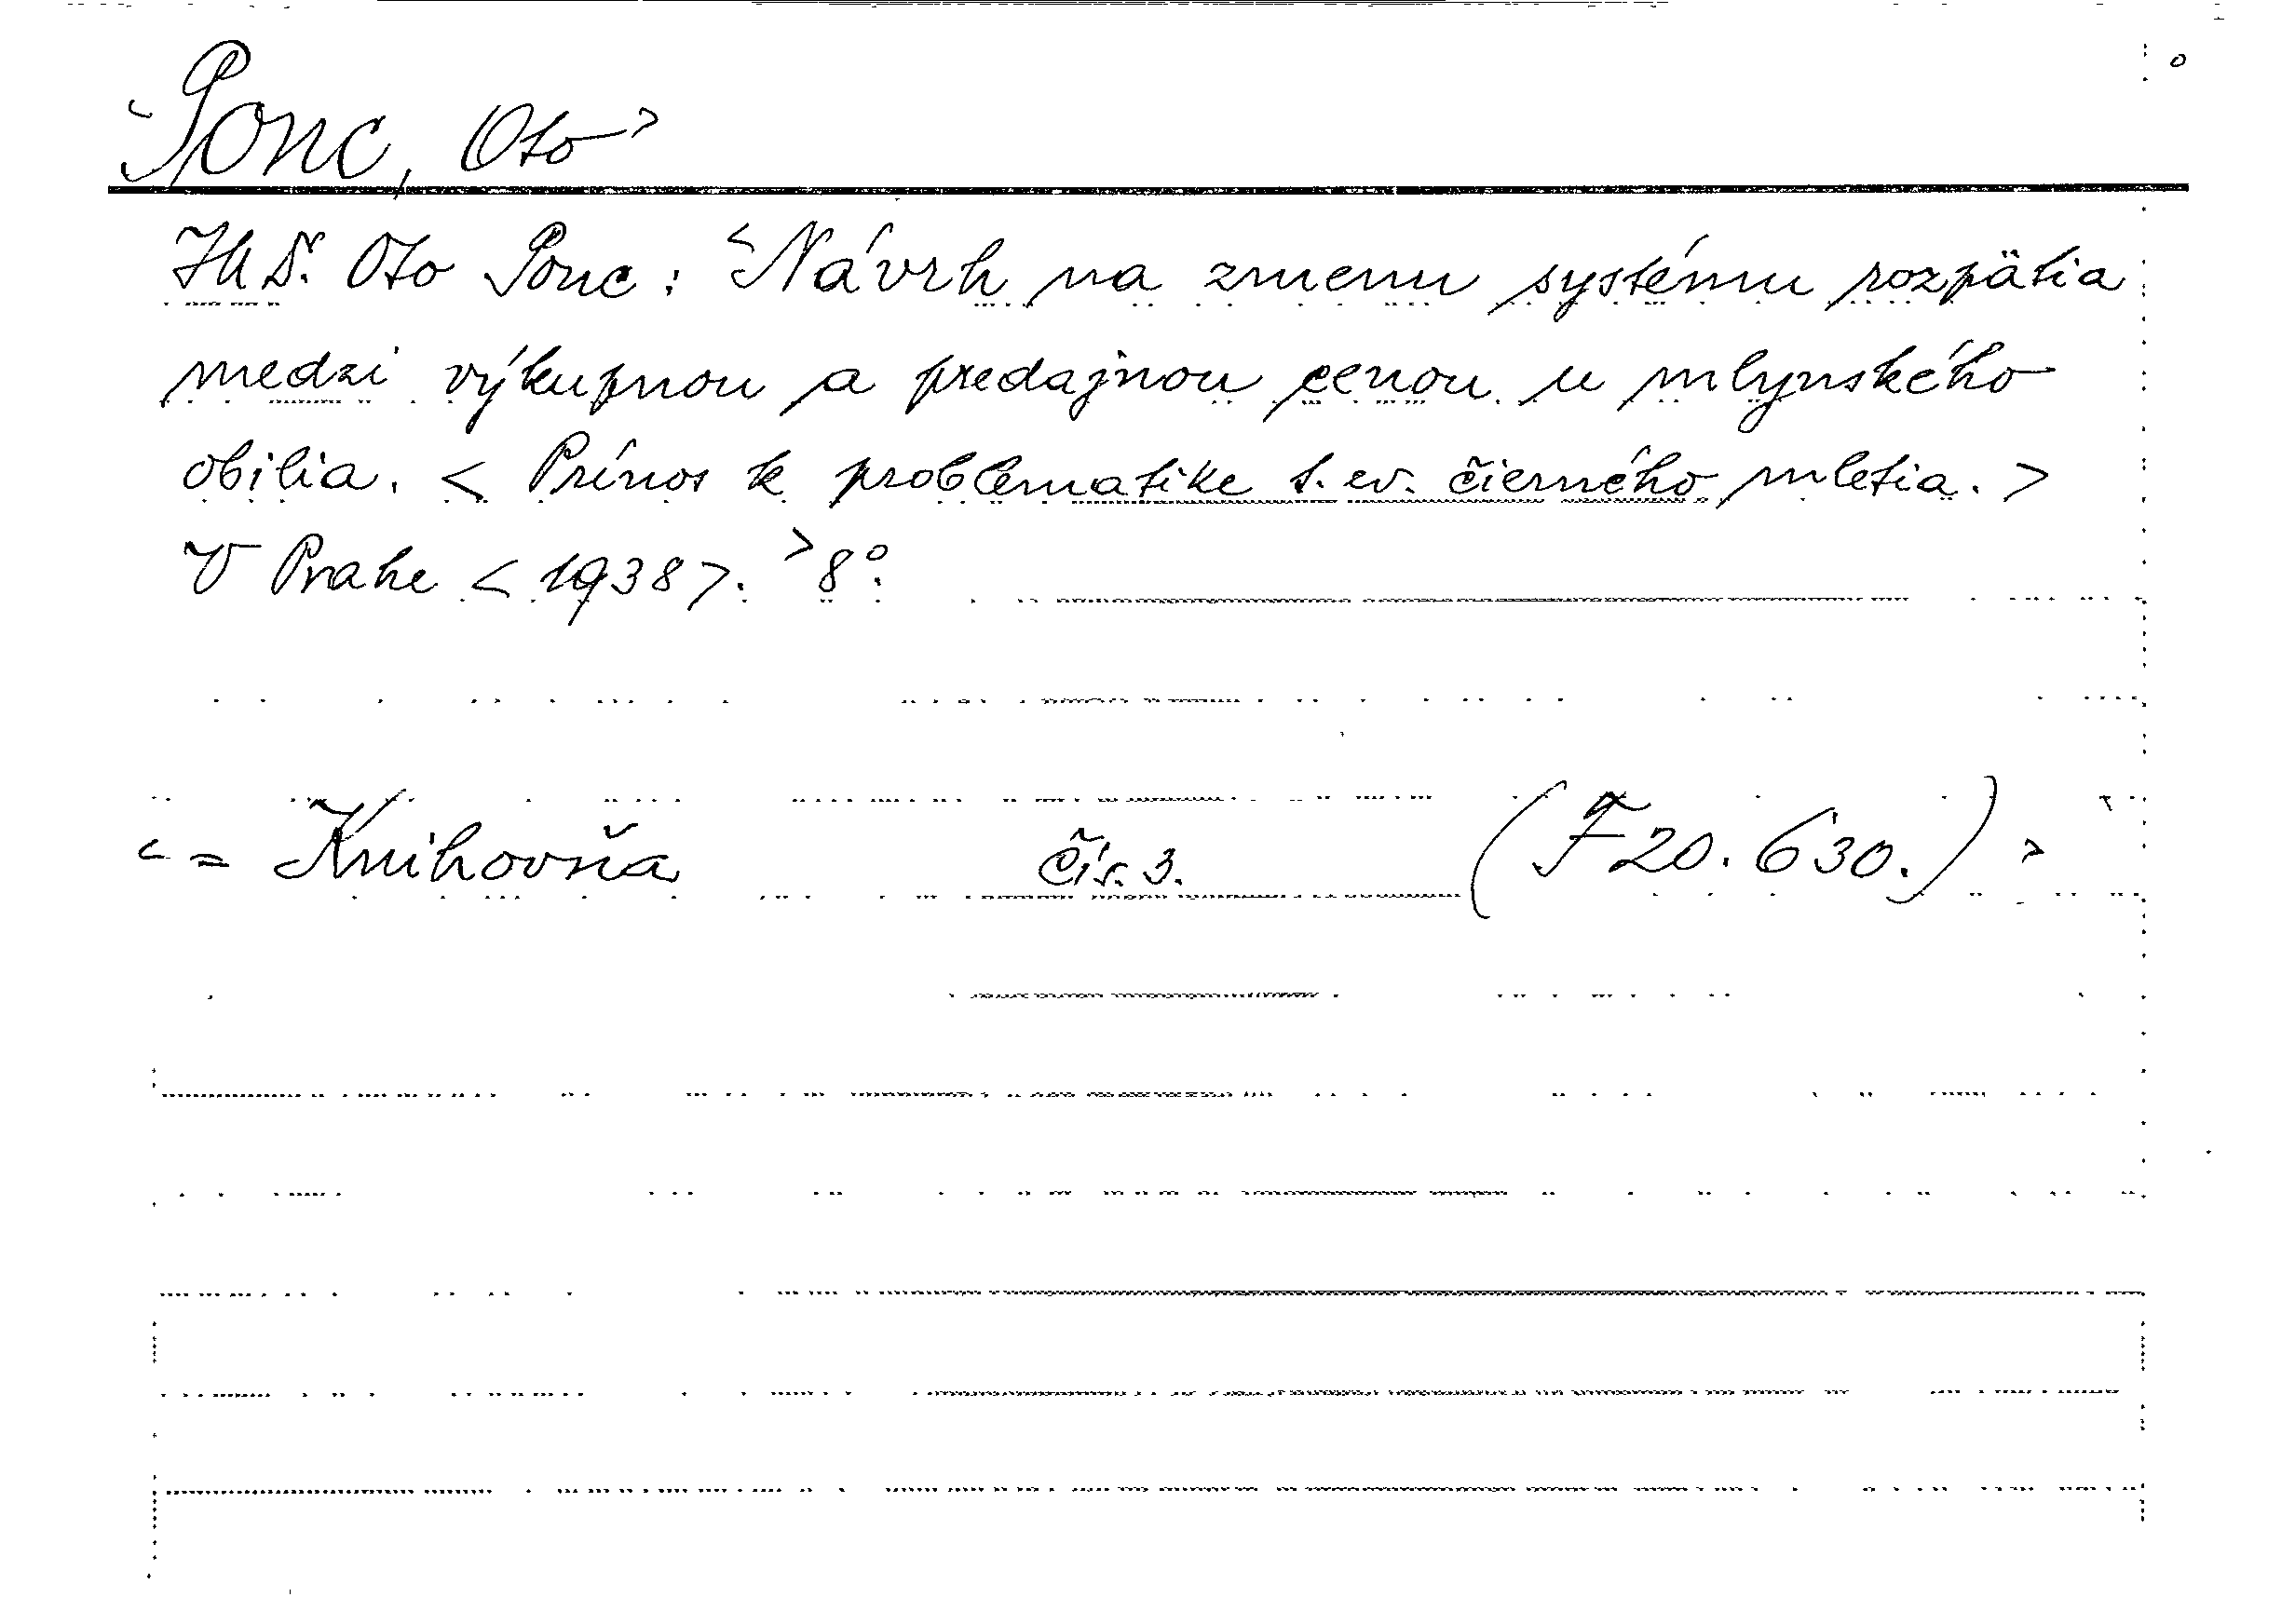 <Ponc, Oto>
JUDr. Oto Ponc: <Návrh na zmenu systému rozpätia
medzi výkupnou a predajnou cenou u mlynského
obilia. < Prínos k problematike t. zv. čierného mletia. >
V Prahe < 1938 >. > 8°.
< = Knihovňa čís. 3. (F 20.630.) >